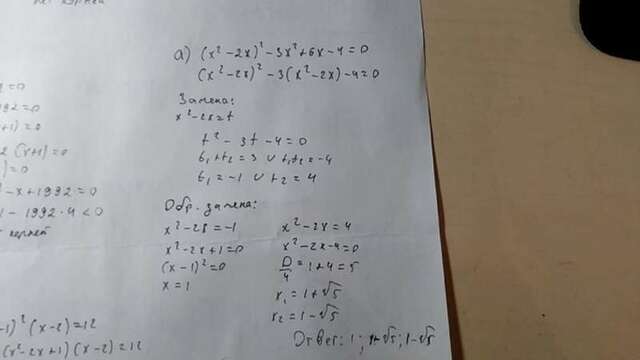 нет корней
а) (x² - 2x)² - 3x² + 6x - 4 = 0
(x² - 2x)² - 3(x² - 2x) - 4 = 0
Замена:
x² - 2x = t
t² - 3t - 4 = 0
t₁ + t₂ = 3 и t₁t₂ = -4
t₁ = -1 и t₂ = 4
Обр. замена:
x² - 2x = -1 x² - 2x = 4
x² - 2x + 1 = 0 x² - 2x - 4 = 0
(x - 1)² = 0 D/4 = 1 + 4 = 5
x = 1 x₁ = 1 + √5
x₂ = 1 - √5
Ответ: 1; 1+√5; 1-√5
= 0
1992 = 0
+1) = 0
2 (x+1) = 0
) = 0
² - x + 1992 = 0
1 - 1992 · 4 < 0
т корней
-1)² (x - 2) = 12
(x² - 2x + 1) (x - 2) = 12